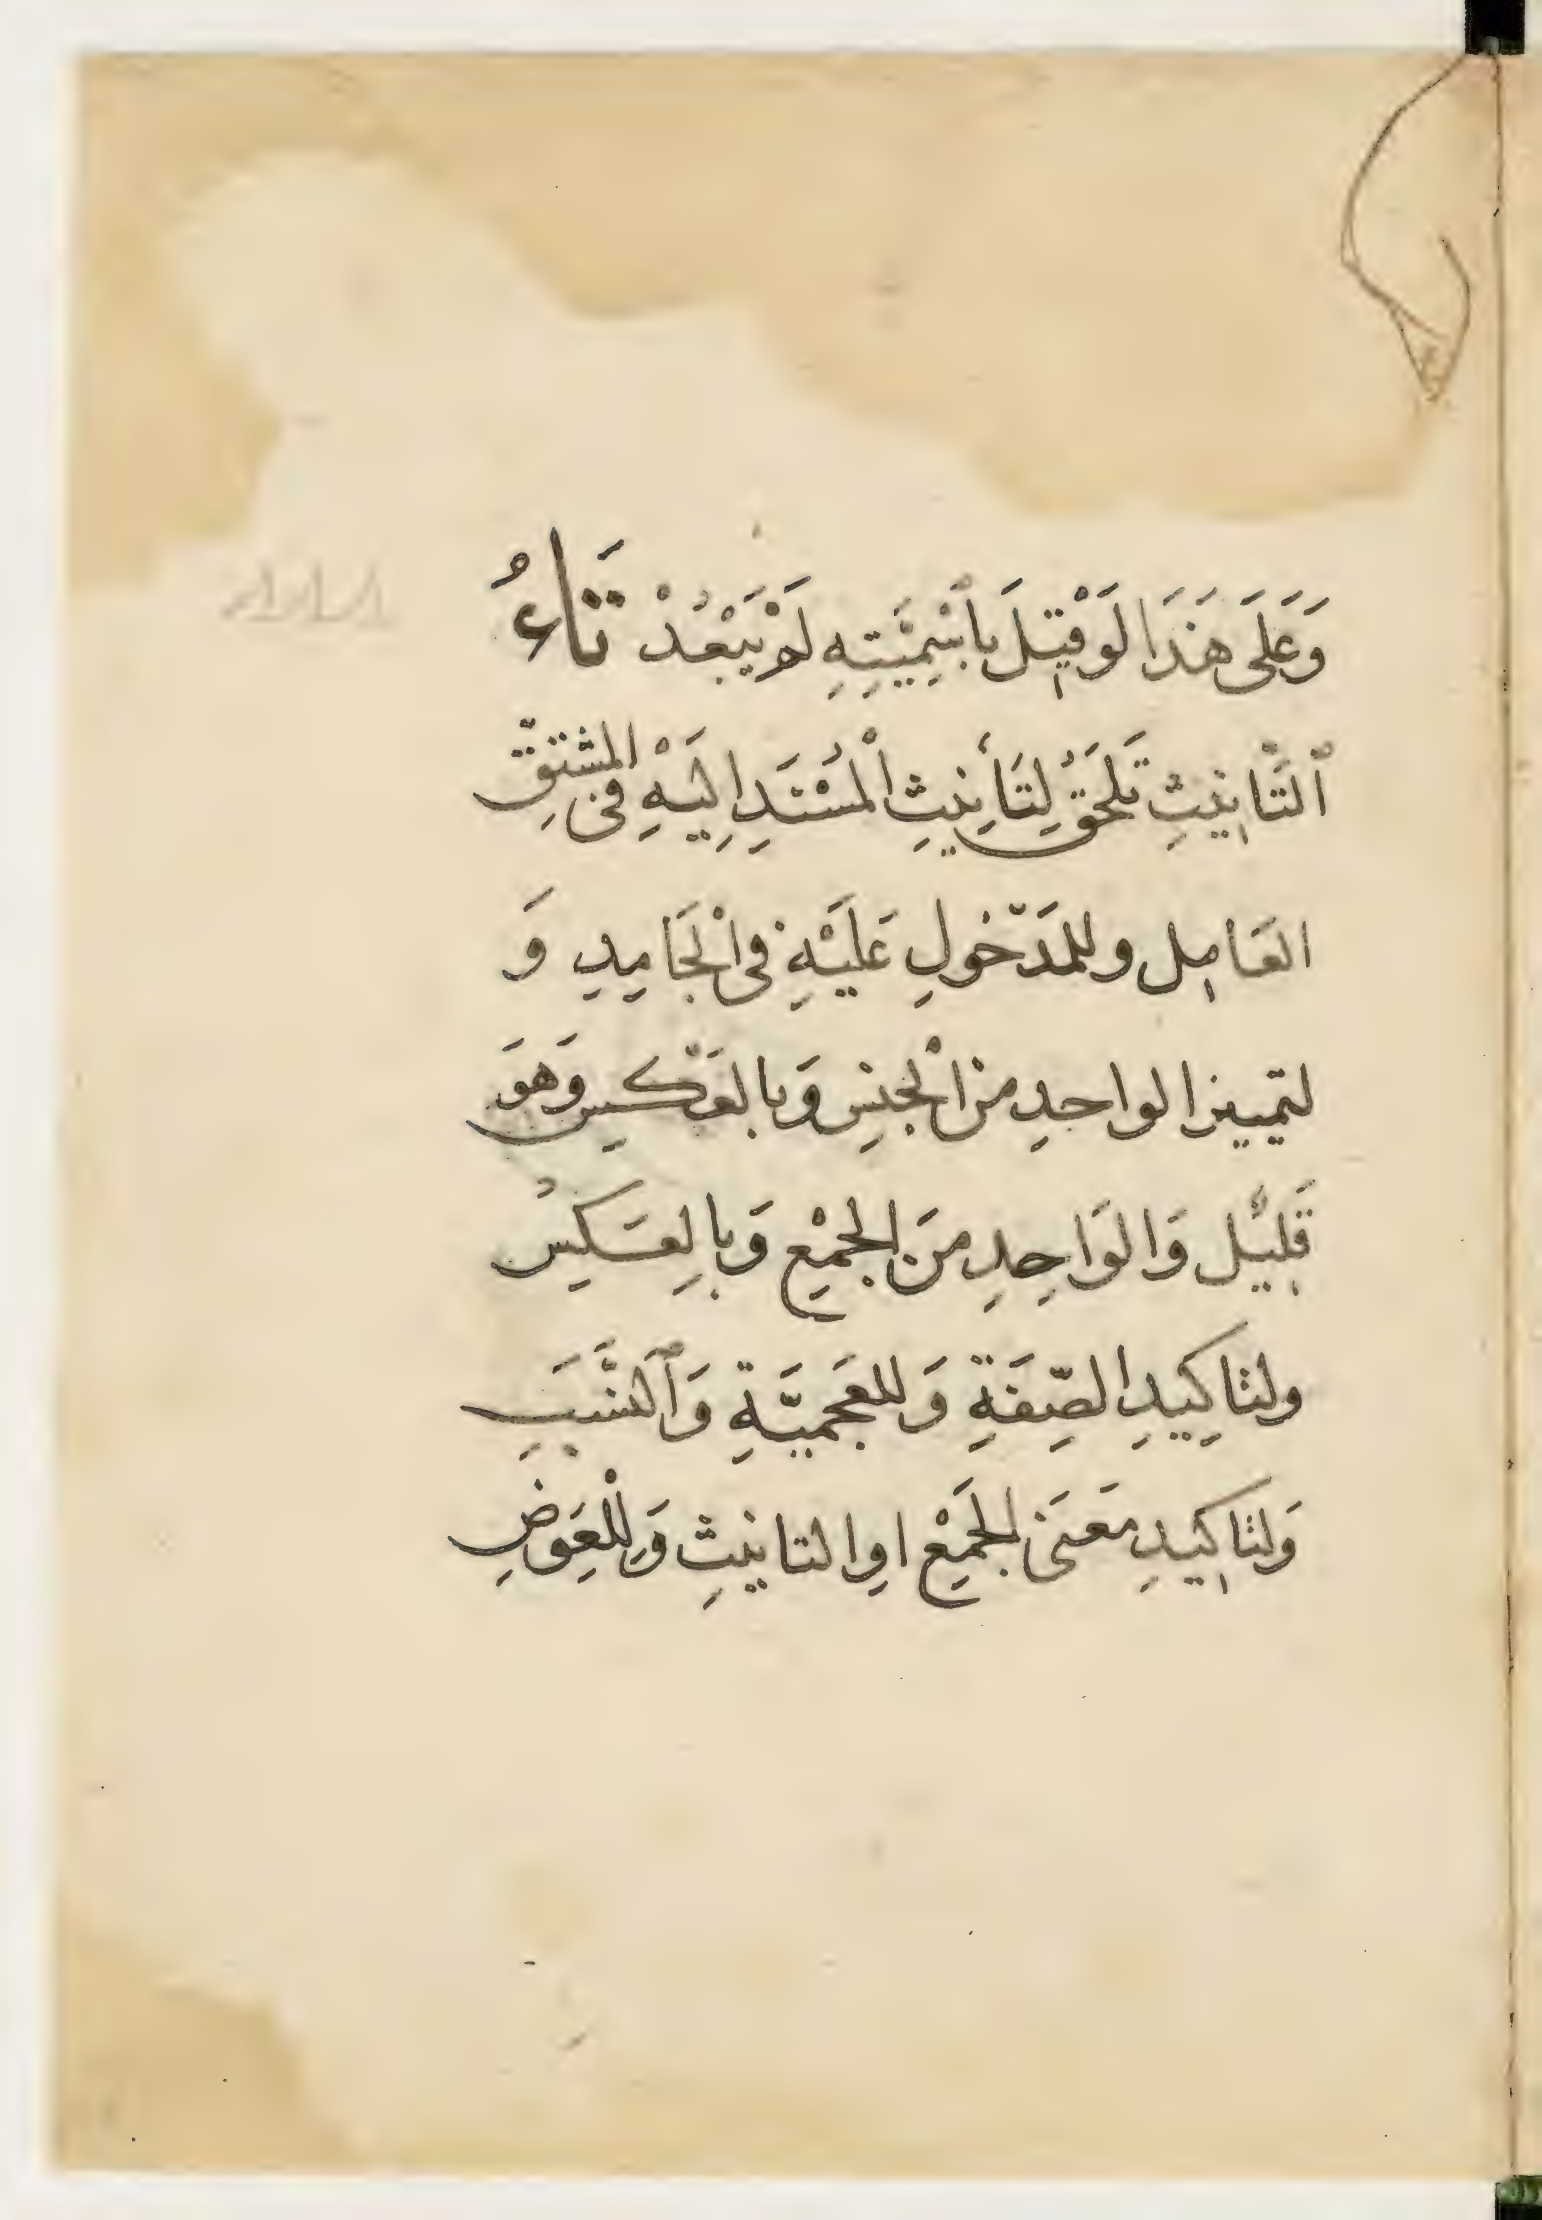 وَعَلَى هَذَا لَوْ قِيلَ بِاسْمِيَّتِهِ لَمْ يَبْعُدْ تَاءُ
ٱلتَّانِيثِ تَلْحَقُ لِتَأْنِيثِ الْمُسْنَدِ اِلَيْهِ فِى المشتقّ
العَامِل وللمَدْخولِ عَلَيْهِ فى الْجَامِدِ وَ
لتمييز الواحدِ من الْجنسِ وَبالعَكْسِ وَهوَ
قَلِيْل وَالوَاحِدِ مِنَ الجَمْعِ وَبِالعَكسِ
ولتاكِيدِ الصِّفَةِ وَللعَجميَّةِ وَٱلنَّسَبِ
وَلتَاكِيدِ مَعنَى الجَمْعِ اوِ التانيثِ وَلِلْعِوَضِ